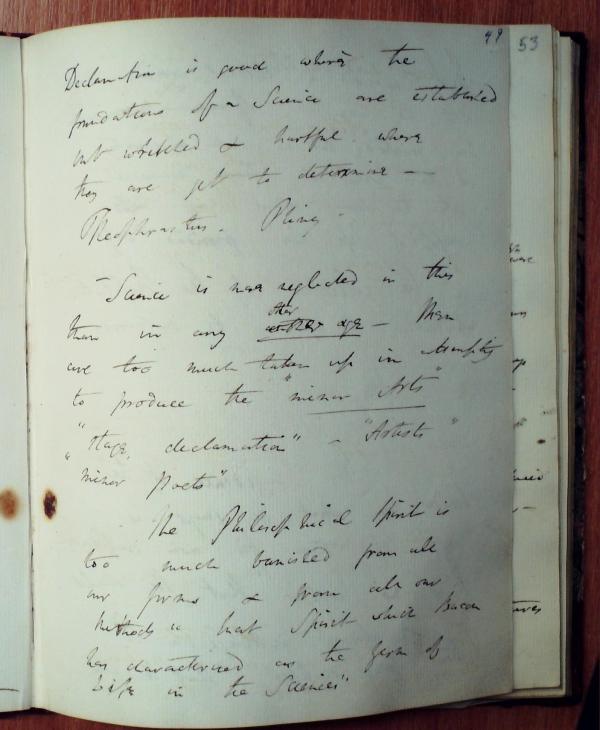 49 53
Declamation is good where the
foundations of a Science are established
but & hurtful where
they are yet to determine —
Theophrastus. Pliny -
- Science is more neglected in this
than in any other age — Men
are too much taken up in attempting
to produce the "minor Arts"
"stage, declamation" - "Artists"
minor Poets"
The Philosophical Spirit is
too much banished from all
our forms & from all our
methods that Spirit which Bacon
has characterized as the germ of
Life in the Sciences"